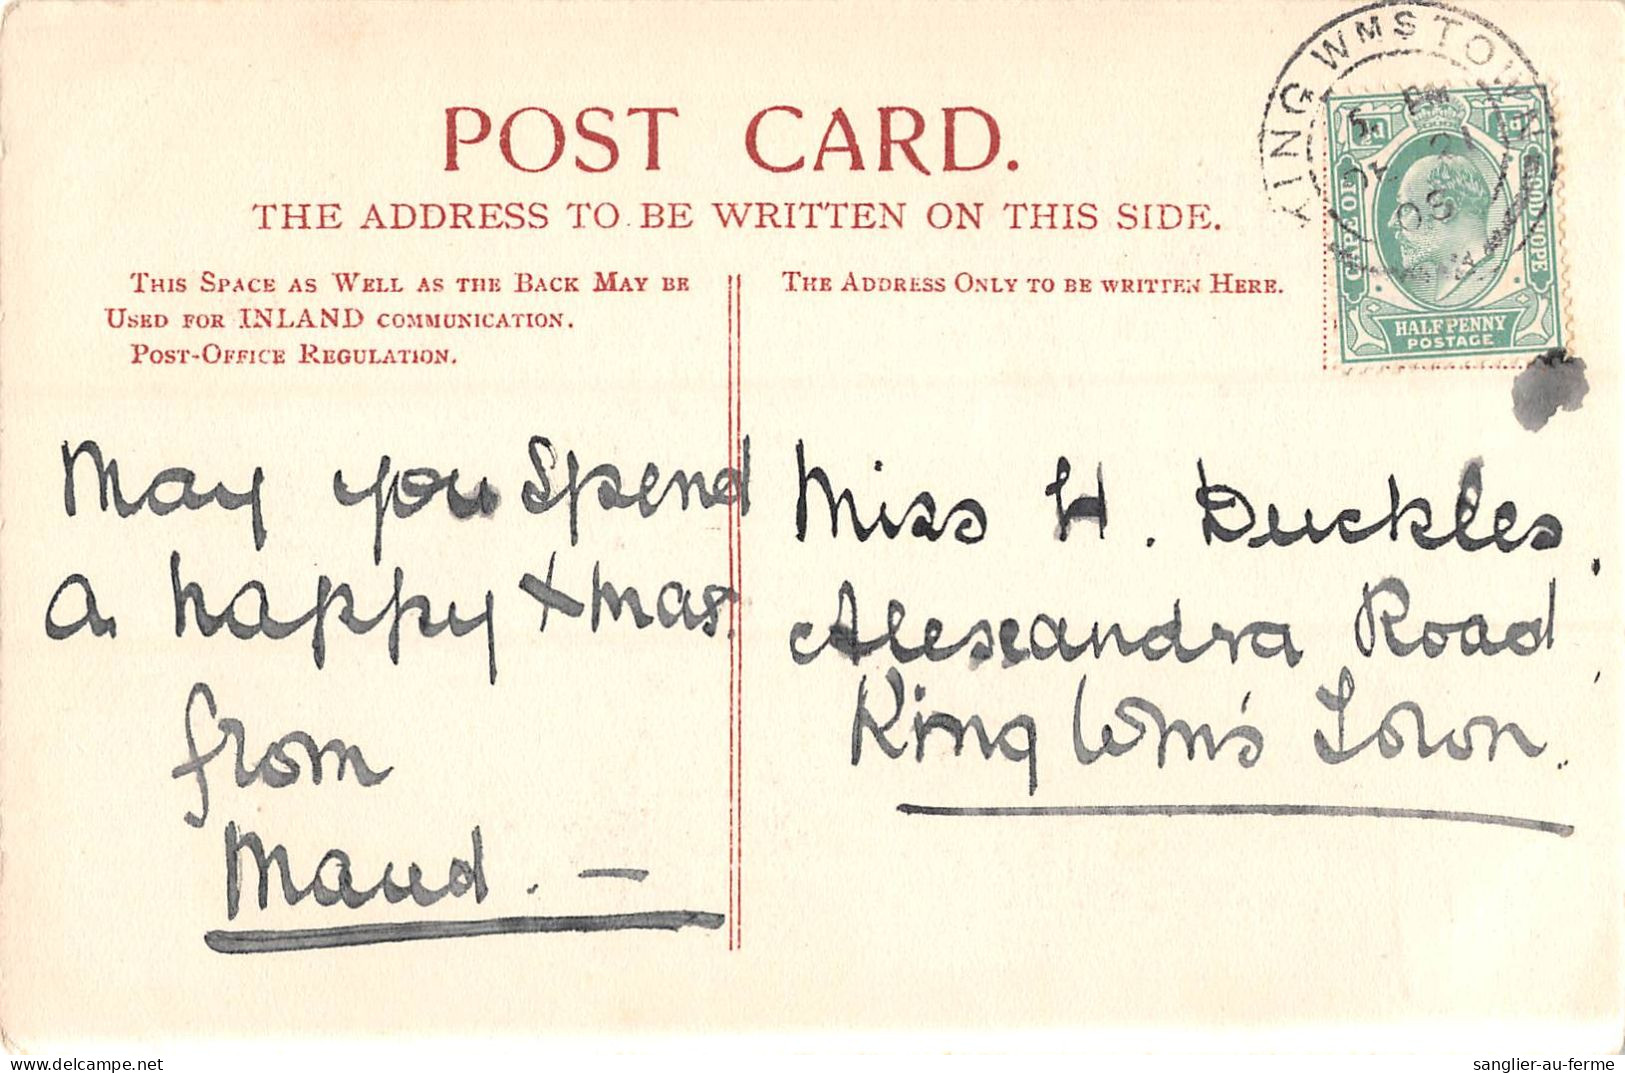 POST CARD.
THE ADDRESS TO BE WRITTEN ON THIS SIDE.
THIS SPACE AS WELL AS THE BACK MAY BE
USED FOR INLAND COMMUNICATION.
POST-OFFICE REGULATION.
THE ADDRESS ONLY TO BE WRITTEN HERE.
KING WMS TOWN
5. PM
DE 21
08
CAPE OF GOOD HOPE
HALFPENNY
POSTAGE
May you spend
a happy Xmas.
from
Maud. —
Miss H. Duckles.
Alexandra Road
King Wm's Town.
sanglier-au-ferme